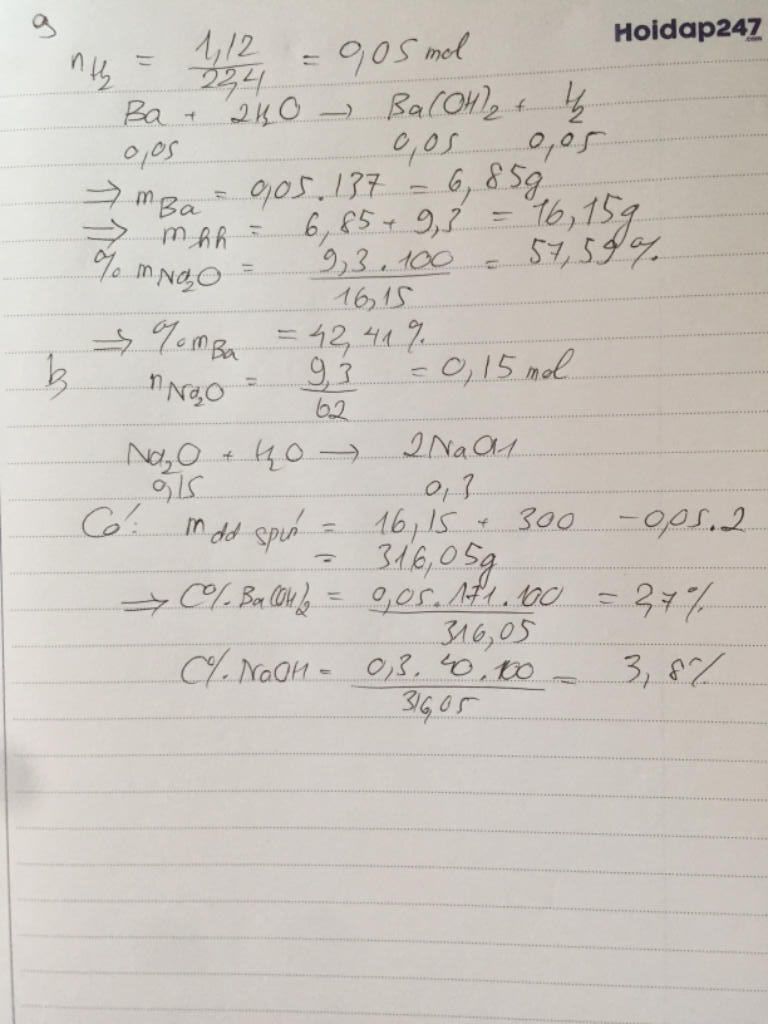 a
Hoidap247.com
nH2 = 1,12/22,4 = 0,05 mol
Ba + 2H2O → Ba(OH)2 + H2
0,05 0,05 0,05
⇒ mBa = 0,05.137 = 6,85g
⇒ mhh = 6,85 + 9,3 = 16,15g
% mNa2O = 9,3.100/16,15 = 57,59%
⇒ %mBa = 42,41%
b
nNa2O = 9,3/62 = 0,15 mol
Na2O + H2O → 2NaOH
0,15 0,3
Có: mdd spứ = 16,15 + 300 - 0,05.2
= 316,05g
⇒ C%Ba(OH)2 = 0,05.171.100/316,05 = 2,7%
C%NaOH = 0,3.40.100/316,05 = 3,8%